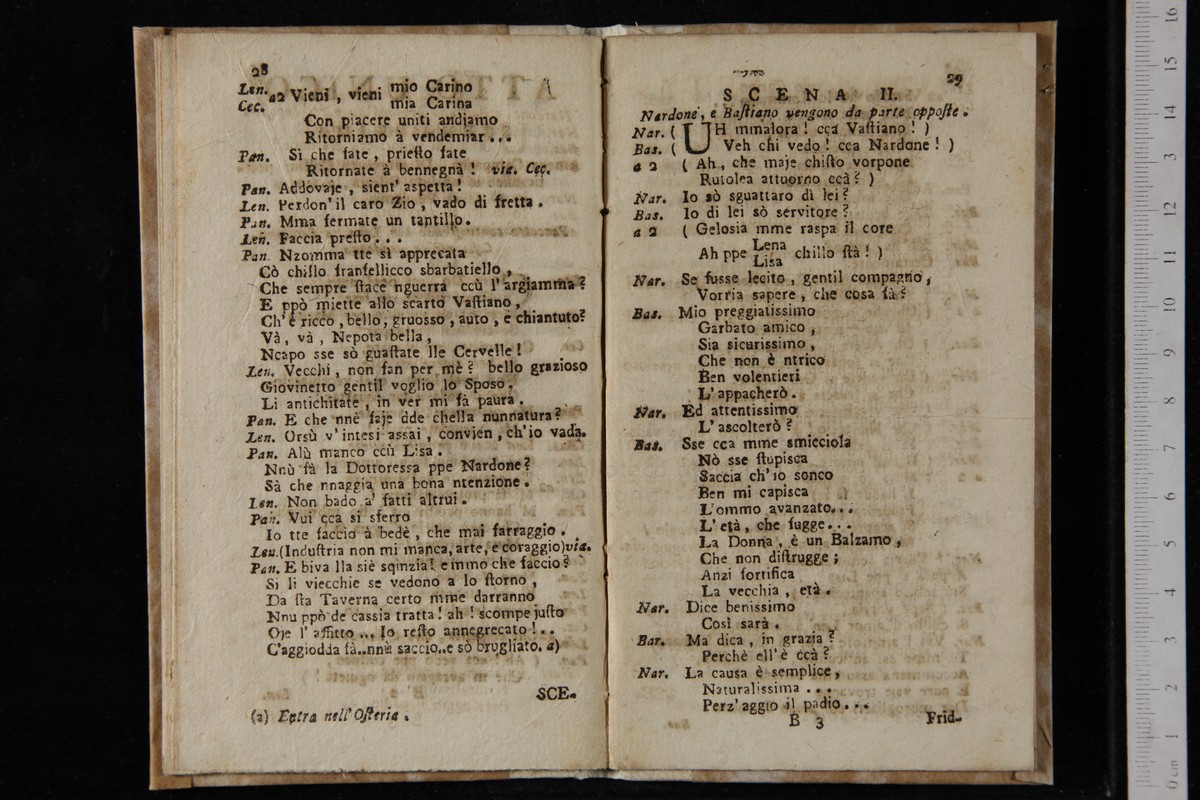 28
Len. a2 Vieni, vieni mio Carino
Cec. mia Carina
Con piacere uniti andjamo
Ritorniamo à vendemiar...
Pan. Sì che fate, prieſto fate
Ritornate à bennegnà! via. Cec.
Pan. Addovaje, sient' aspetta!
Len. Perdon' il caro Zio, vado di fretta.
Pan. Mma fermate un tantillo.
Len. Faccia preſto...
Pan. Nzomma tte sì apprecata
Cò chiſlo franfellicco sbarbatiello,
Che sempre ſtace nguerra ccù l'argiamma?
E ppò miette allo scarto Vaſtiano,
Ch'è ricco, bello, gruosso, auto, e chiantuto?
Và, và, Nepota bella,
Ncapo sse sò guaſtate lle Cervelle!
Len. Vecchi, non fan per mè? bello grazioso
Giovinetto gentil voglio lo Sposo.
Li antichitate, in ver mi fà paura.
Pan. E che nnè faje dde chella nunnatura?
Len. Orsù v'intesi assai, convien, ch'io vada.
Pan. Alù manco ccù Lisa.
Nnù fà la Dottoressa ppe Nardone?
Sà che nnaggia una bona ntenzione.
Len. Non bado a' fatti altrui.
Pan. Vui cca si sferro
Io tte faccio à bedè, che mai farraggio.
Len. (Induſtria non mi manca, arte, e coraggio) via.
Pan. E biva lla siè sqinzia! emmo che faccio?
Si li viecchie se vedono a lo ſtorno,
Da ſta Taverna certo mme darranno
Nnu ppò de cassia tratta! ah! scompe juſto
Oje l'affitto... Io reſto annegrecato!..
C'aggiodda fà..nnu saccio..e sò brugliato. a)
SCE-
(a) Entra nell' Oſteria.
29
SCENA II.
Nardone, e Baſtiano vengono da parte oppoſte.
Nar. ( UH mmalora! cca Vaſtiano! )
Bas. ( Veh chi vedo! cca Nardone! )
a 2 ( Ah, che maje chiſto vorpone
Rutolea attuorno ccà? )
Nar. Io sò sguattaro dì lei?
Bas. Io di lei sò servitore?
a 2 ( Gelosia mme raspa il core
Ah ppe Lena chillo ſtà! )
Lisa
Nar. Se fusse lecito, gentil compagno,
Vorria sapere, che cosa fà?
Bas. Mio preggiatissimo
Garbato amico,
Sia sicurissimo,
Che non è ntrico
Ben volentieri
L'appacherò.
Nar. Ed attentissimo
L'ascolterò?
Bas. Sse cca mme smicciola
Nò sse ſtupisca
Saccia ch'io sonco
Ben mi capisca
L'ommo avanzato...
L'età, che fugge...
La Donna, è un Balzamo,
Che non diſtrugge;
Anzi fortifica
La vecchia, età.
Nar. Dice benissimo
Così sarà.
Bar. Ma dica, in grazia?
Perchè ell'è ccà?
Nar. La causa è semplice,
Naturalissima...
Perz'aggio il padio...
B 3
Frid-